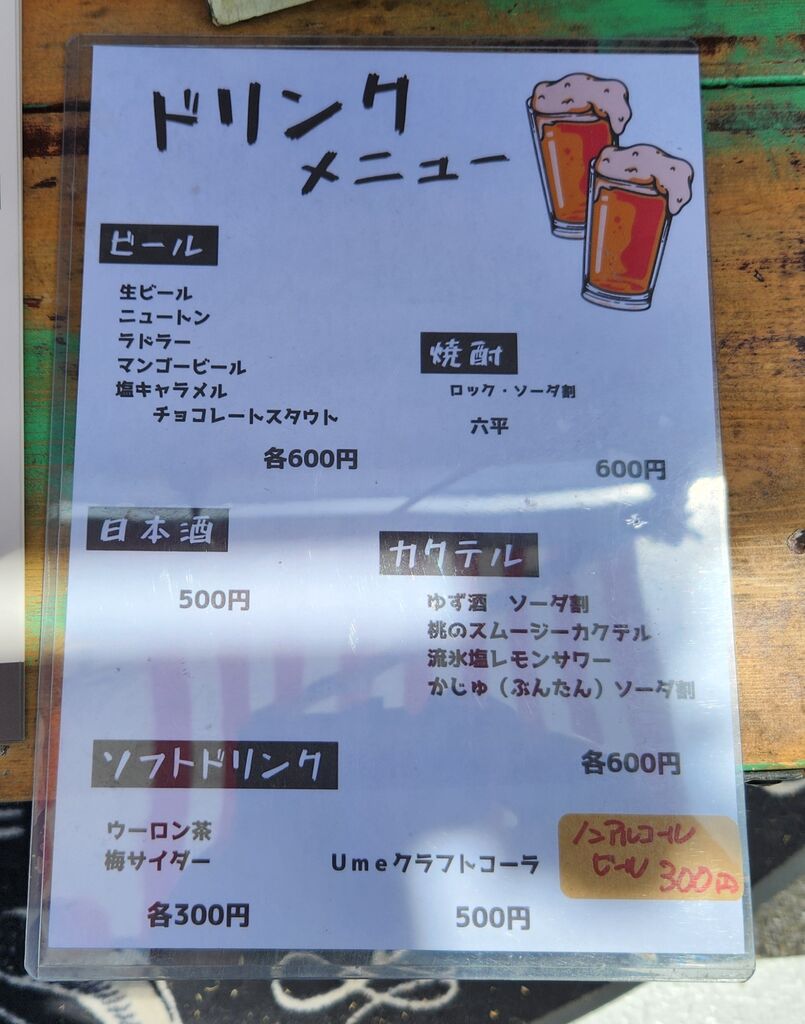 ドリンク
メニュー
ビール
生ビール
ニュートン
ラドラー
マンゴービール
塩キャラメル
チョコレートスタウト
各600円
焼酎
ロック・ソーダ割
六平
600円
日本酒
500円
カクテル
ゆず酒 ソーダ割
桃のスムージーカクテル
流氷塩レモンサワー
かじゅ（ぶんたん）ソーダ割
各600円
ソフトドリンク
ウーロン茶
梅サイダー
各300円
Umeクラフトコーラ
500円
ノンアルコール
ビール 300円